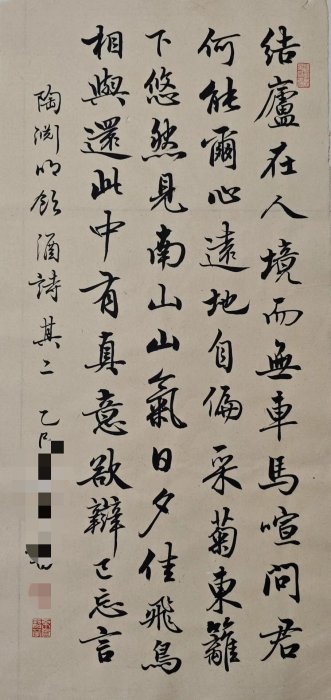 結廬在人境而無車馬喧問君
何能爾心遠地自偏采菊東籬
下悠然見南山山氣日夕佳飛鳥
相與還此中有真意欲辯已忘言
陶淵明飲酒詩其二 乙巳